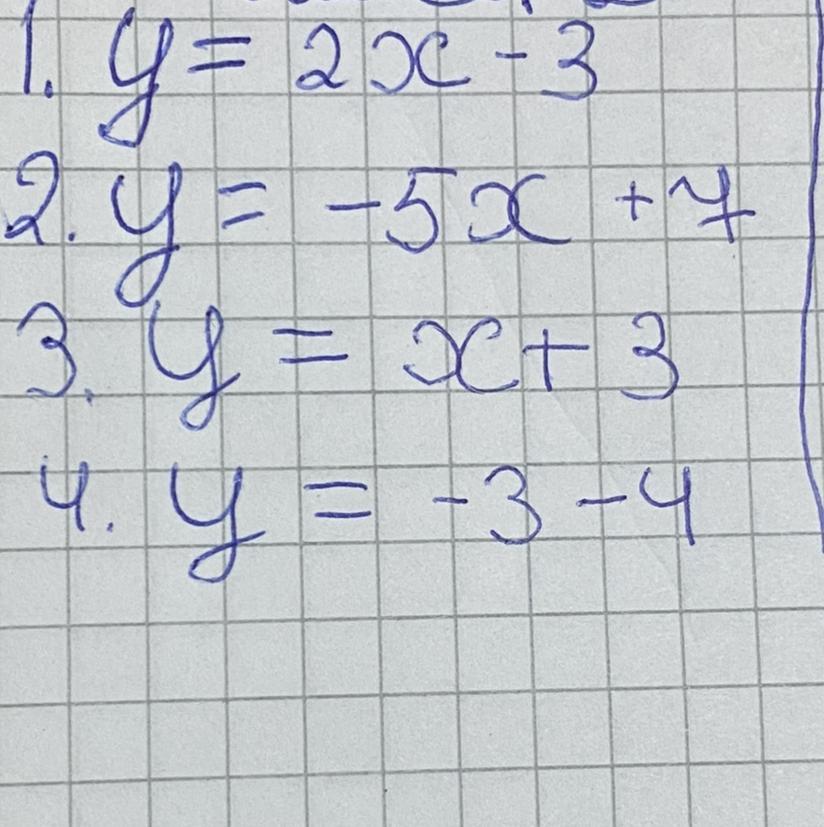 1. y = 2x - 3
2. y = -5x + 7
3. y = x + 3
4. y = -3 - 4